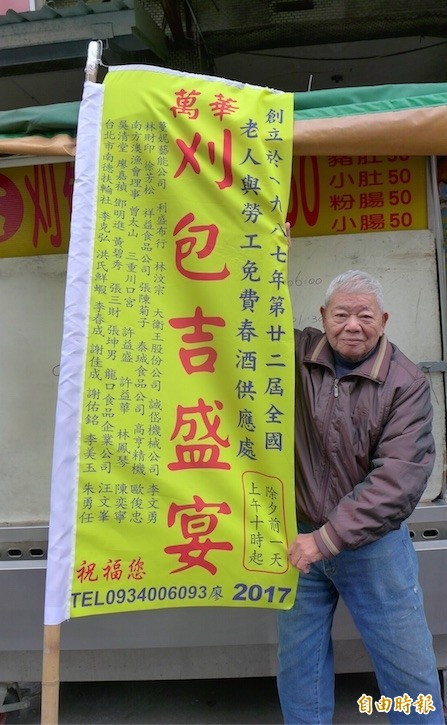 創立於一九八七年第廿二屆全國
老人與勞工免費春酒供應處
萬華
刈包吉盛宴
除夕前一天
上午十時起
董妮藝能公司 利盛布行 林汶宗 大衛王股份公司 誠岱機械公司 李文勇
林財印 徐芳松 祥益食品公司 張陳菊子 泰珷食品公司 高亨精機 歐俊忠
南方澳漁會理事 曾太山 三重川口宮 許益盛 許益華 林鳳琴 陳奕寧
吳清堂 廖嘉禎 鄧明進 黃碧秀 張三財 張坤男 龍口食品企業公司 汪文峯
台北市南德扶輪社 李克弘 洪氏鮮蝦 李春成 謝佳成 謝佑銘 李美玉 朱勇任
祝福您
TEL0934006093廖 2017
刈
豬肚50
小肚50
粉腸50
小腸50
自由時報